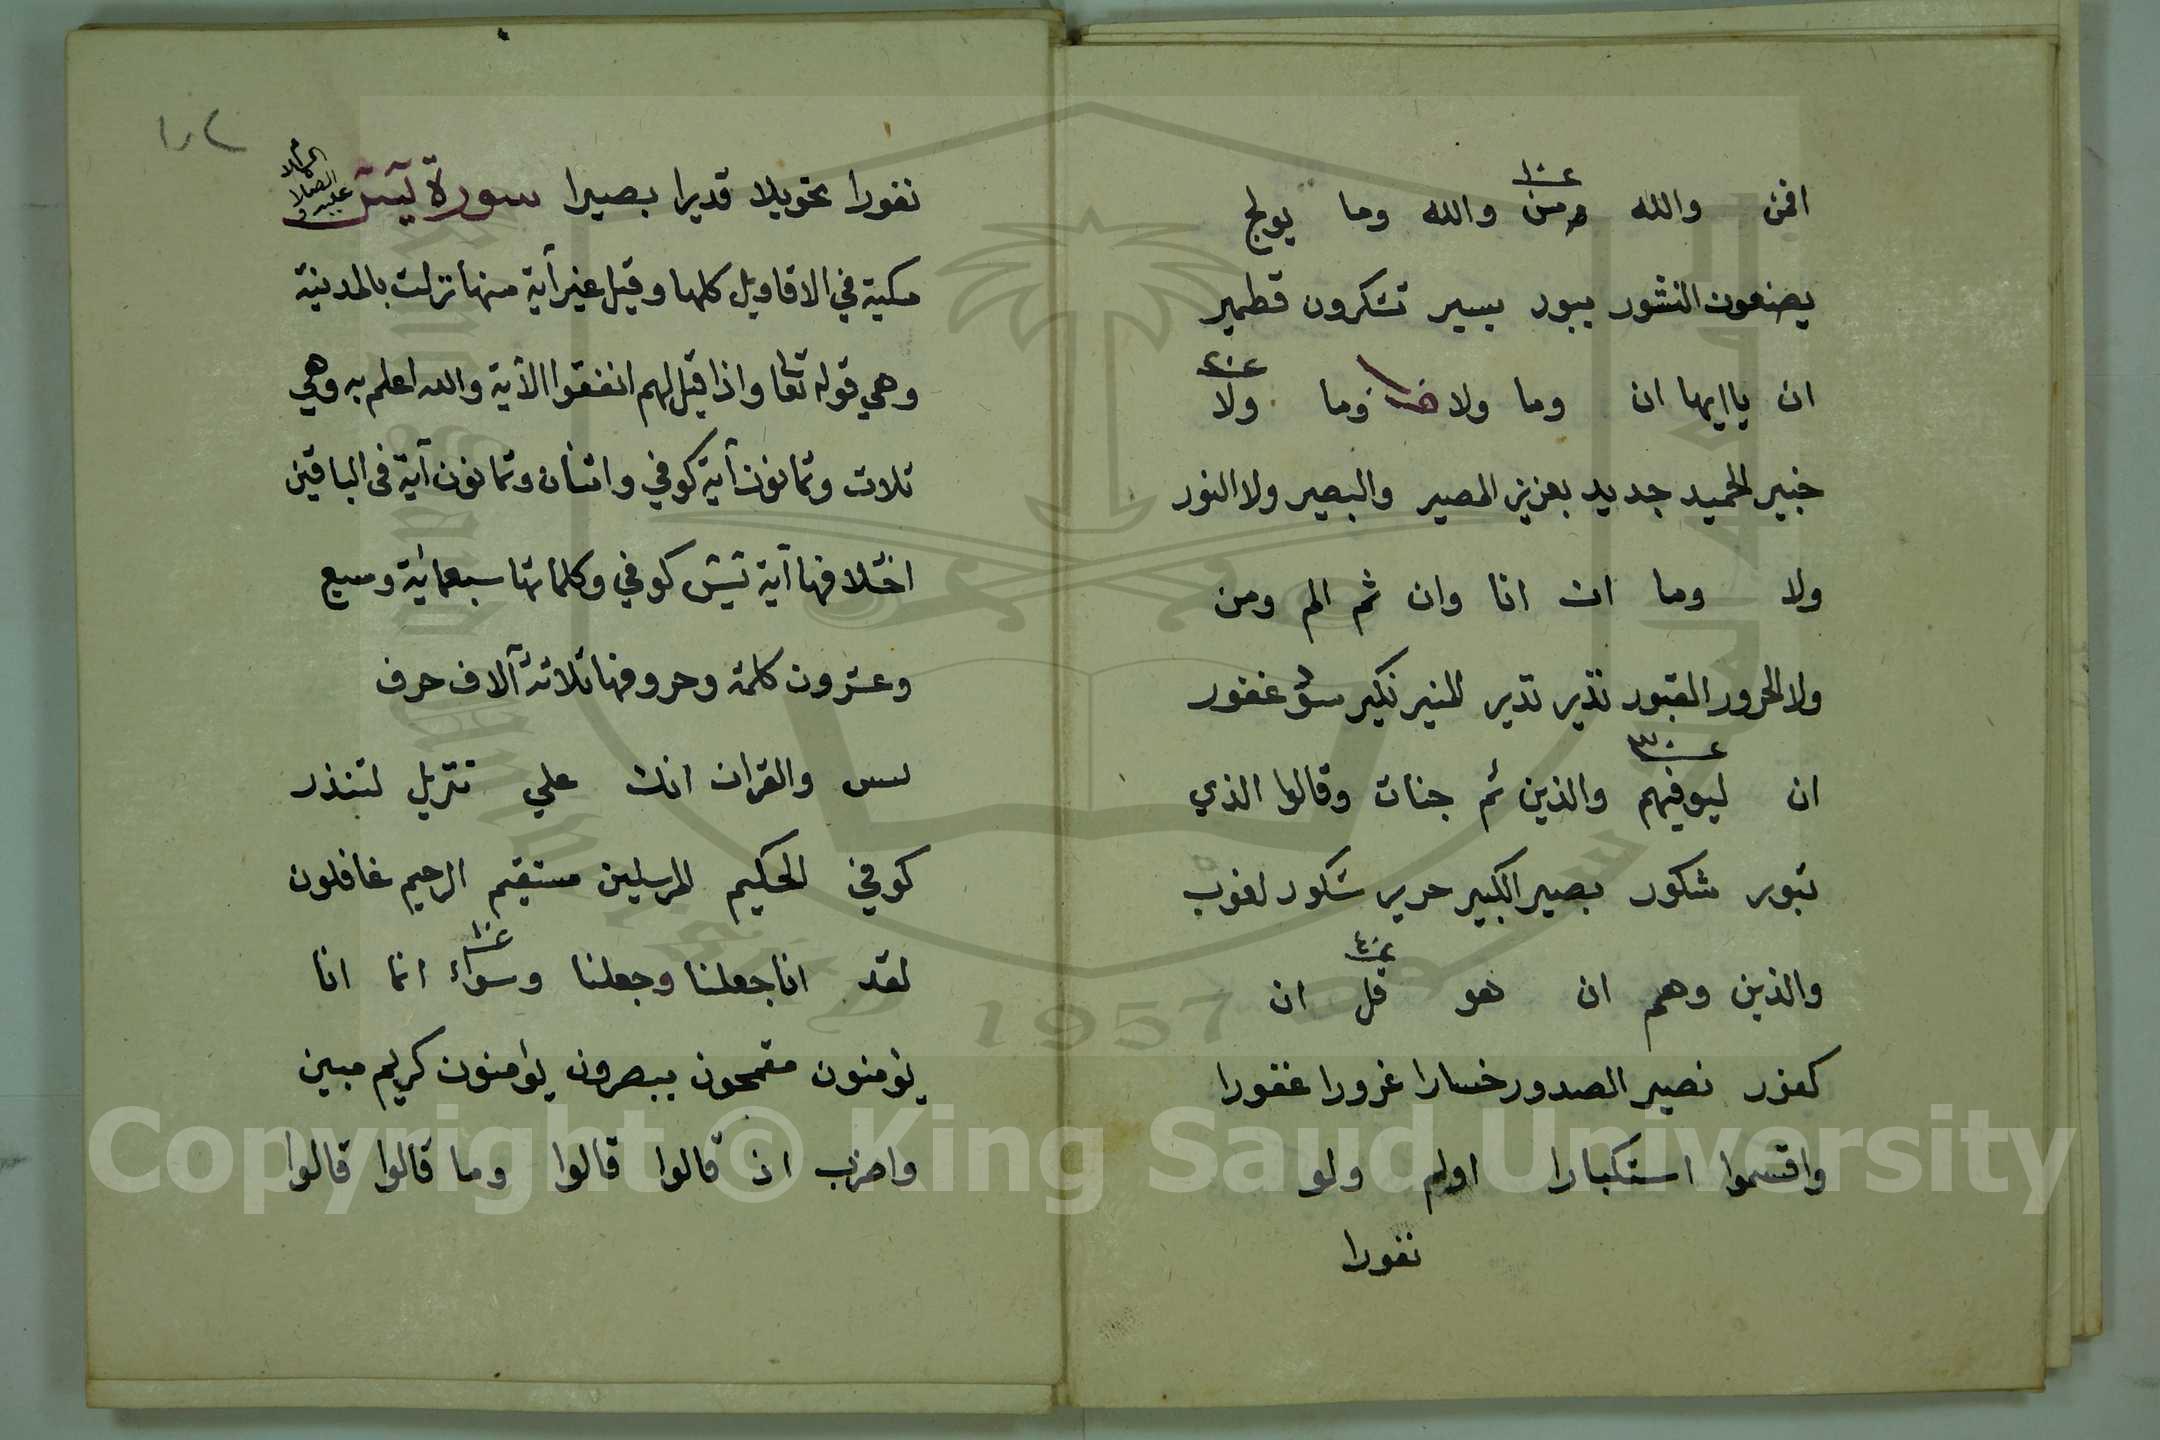 عــ١٠
افمن والله ومن والله وما يولج
يصنعون النشور يبور يسير تشكرون قطمير
عــ٢٠
ان ياايها ان وما ولا هنا وما ولا
خبير الحميد جديد بعزيز المصير والبصير ولا النور
ولا وما ان انا وان ثم الم ومن
ولا الحرور القبور نذير نذير المنير نكير سود غفور
عــ٣٠
ان ليوفيهم والذين ثم جنات وقالوا الذي
تبور شكور بصير الكبير حرير شكور لغوب
عــ٤٠
والذين وهم ان هو قل ان
كفور نصير الصدور خسارا غرورا غفورا
واقسموا استكبارا اولم ولو
نفورا
١٠٢
نفورا تحويلا قديرا بصيرا سورة يس عليه الصلاة والسلام
مكية في الاقاويل كلها وقيل غير آية منها نزلت بالمدينة
وهي قوله تعا واذا قيل لهم انفقوا الآية والله اعلم به وهي
ثلاث وثمانون آية كوفي واثنان وثمانون آية فى الباقين
اختلافها آية يس كوفي وكلماتها سبعماية وسبع
وعشرون كلمة وحروفها ثلاثة آلاف حرف
يس والقران انك علي تنزيل لتنذر
كوفي الحكيم المرسلين مستقيم الرحيم غافلون
عــ١٠
لقد انا جعلنا وجعلنا وسواء انما انا
يؤمنون مقمحون يبصرون يؤمنون كريم مبين
واضرب اذ قالوا قالوا وما قالوا قالوا
King Saud University
1957
Copyright © King Saud University